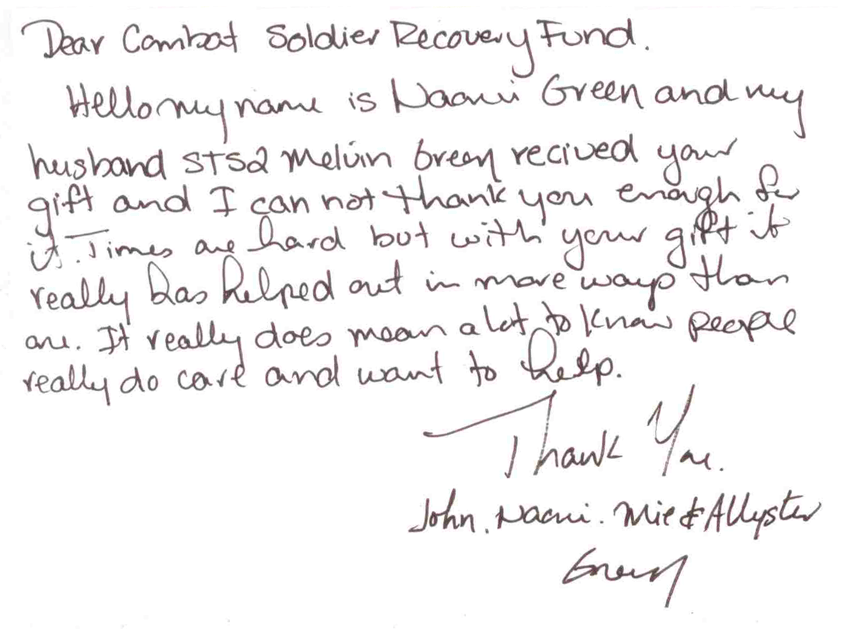 Dear Combat Soldier Recovery Fund.
Hello my name is Naomi Green and my
husband STS2 Melvin Green recived your
gift and I can not thank you enough for
it. Times are hard but with your gift it
really has helped out in more ways than
one. It really does mean a lot to know people
really do care and want to help.
Thank You.
John. Naomi. Mie & Allyster
Green